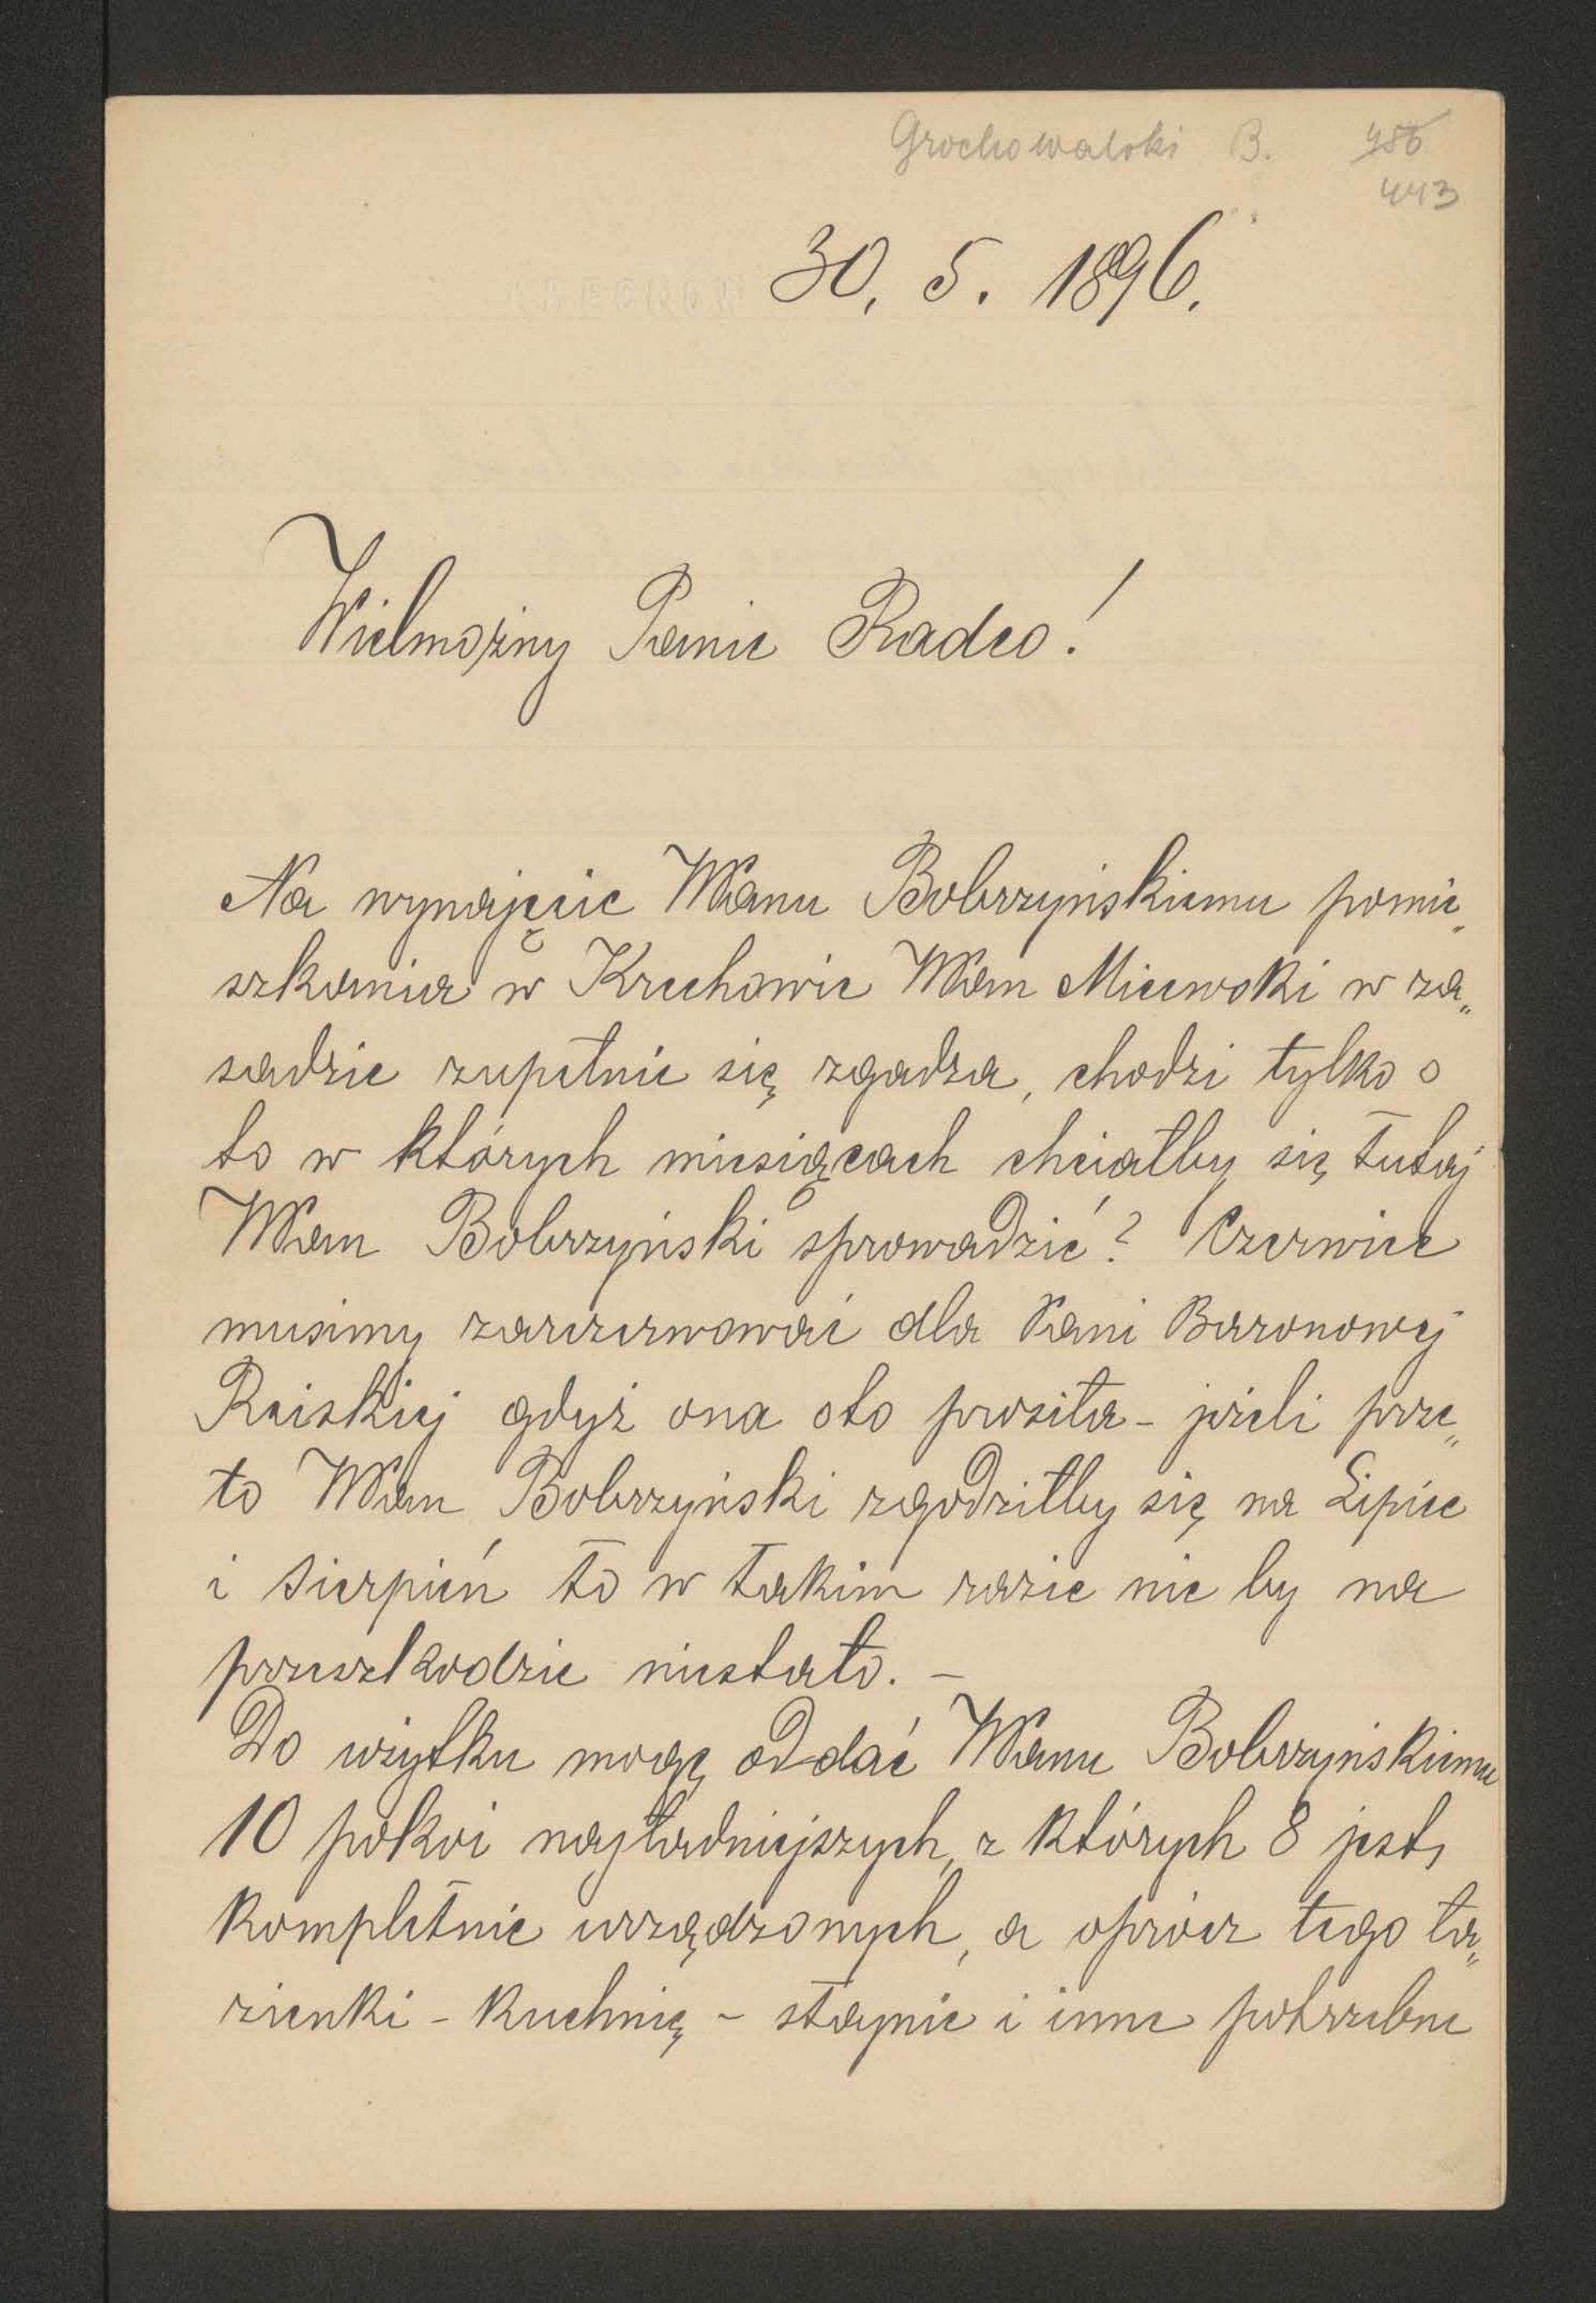 Grochowalski B. 486
443
30, 5. 1896.
Wielmożny Panie Radco!
Na wynajęcie WPanu Bobrzyńskiemu pomie„
szkania w Krechowie WPan Micewski w za„
sadzie zupełnie się zgadza, chodzi tylko o
to w których miesiącach chciałby się tutaj
WPan Bobrzyński sprowadzić? Czerwiec
musimy zarezerwować dla Pani Baronowej
Reiskiej gdyż ona oto prosiła - jeżeli prze„
to WPan Bobrzyński zgodziłby się na Lipiec
i Sierpień to w takim razie nic by na
przeszkodzie niestało. -
Do użytku mogę oddać WPanu Bobrzyńskiemu
10 pokoi najładniejszych, z których 8 jest,
kompletnie urządzonych, a oprócz tego ła„
zienki - kuchnię - stajnie i inne potrzebne